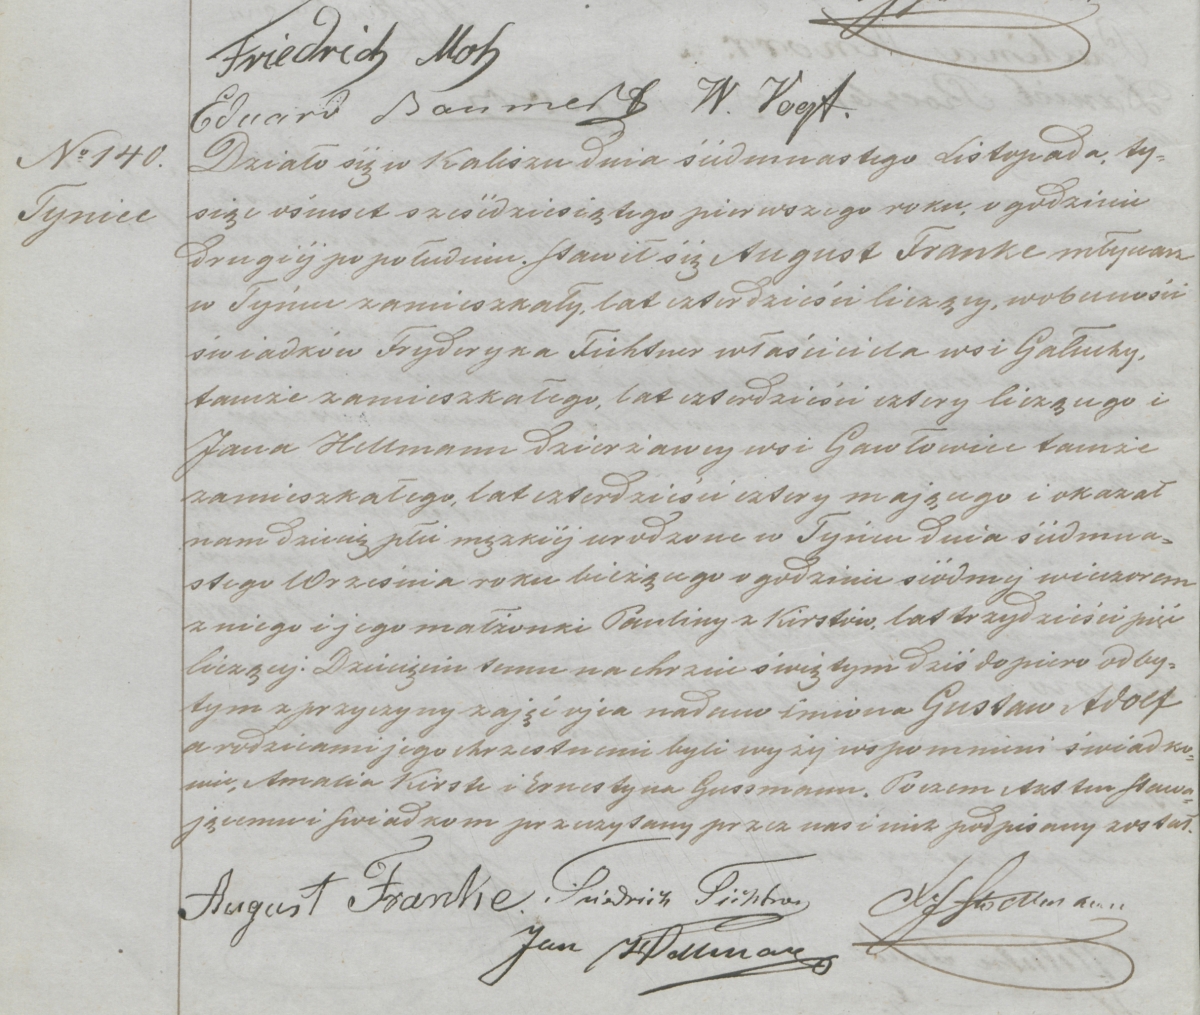 Friedrich Moh
Eduard W. Vogt.
No 140.
Tyniec
Działo się w Kaliszu dnia siedmnastego Listopada, ty-
siąc ośmset sześćdziesiątego pierwszego roku, o godzinie
drugiéj po południu. Stawił się August Franke młynarz
w Tyńcu zamieszkały, lat czterdzieści liczący, w obecności
świadków Fryderyka Fichtner właściciela wsi Gałuchy,
tamże zamieszkałego, lat czterdzieści cztery liczącego i
Jana Hellmann dzierżawcy wsi Gawłowice tamże
zamieszkałego, lat czterdzieści cztery mającego i okazał
nam dziecię płci męzkiéj urodzone w Tyńcu dnia siedmna-
stego Września roku bieżącego o godzinie siódméj wieczorem
z niego i jego małżonki Pauliny z Kirstów, lat trzydzieści pięć
liczącéj. Dziecięciu temu na chrzcie świętym dziś dopiero odby-
tym z przyczyny zajęć ojca nadano imiona Gustaw Adolf
a rodzicami jego chrzestnemi byli wyżéj wspomnieni świadko-
wie, Amalia Kirste i Ernestyna Gussmann. Poczem Akt ten stawa-
jącemu i świadkom przeczytany przez nas i nich podpisany został.
August Franke. Friedrich Fichtner
Jan Hellmann